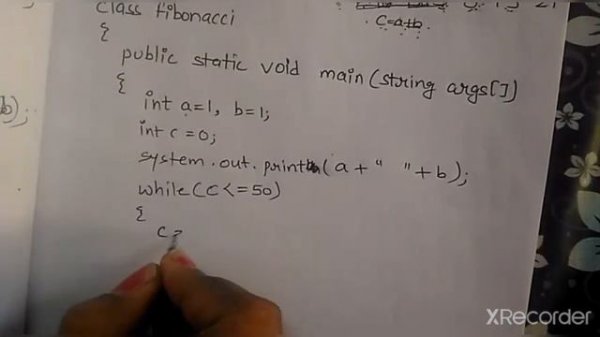 class Fibonacci
c=a+b
{
public static void main(string args[])
{
b);
int a=1, b=1;
int c=0;
system.out.print(a+" "+b);
while(c<=50)
{
c=
XRecorder